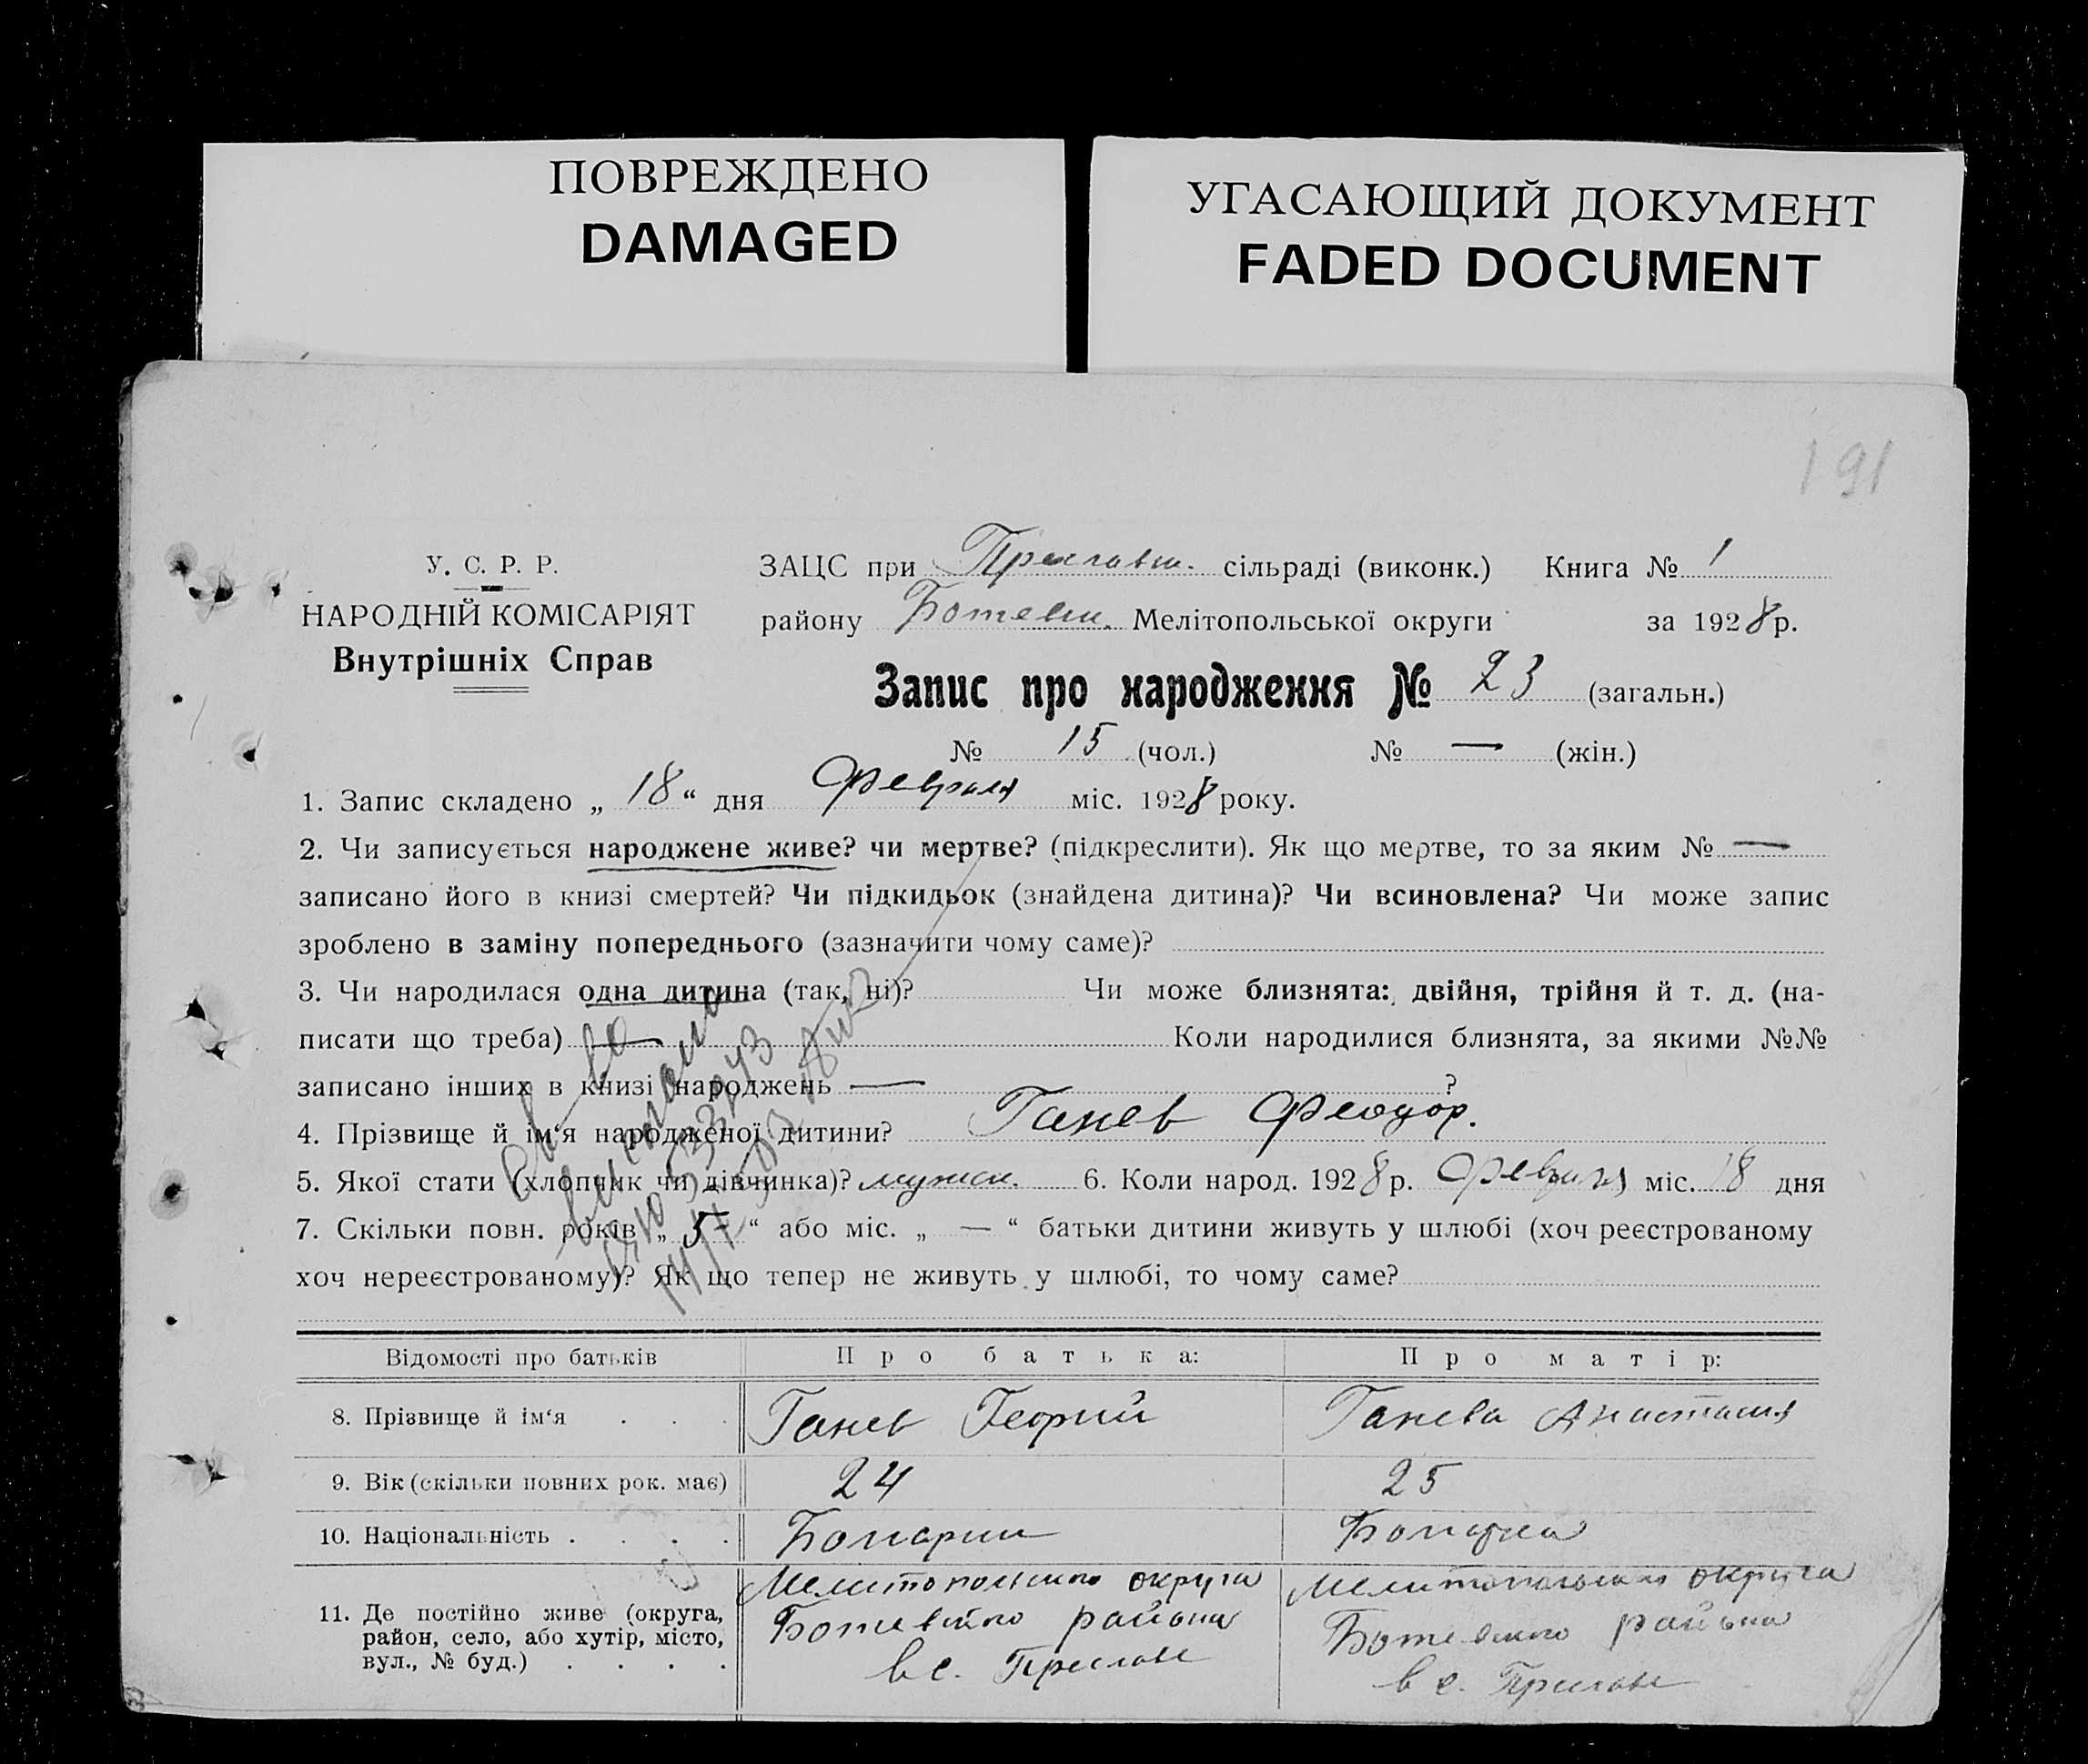 ПОВРЕЖДЕНО
DAMAGED
УГАСАЮЩИЙ ДОКУМЕНТ
FADED DOCUMENT
191
У. С. Р. Р.
НАРОДНІЙ КОМІСАРІЯТ
Внутрішніх Справ
ЗАЦС при Преславск. сільраді (виконк.) Книга № 1
району Ботевск. Мелітопольської округи за 1928 р.
Запис про народження № 23 (загальн.)
№ 15 (чол.) № — (жін.)
1. Запис складено „ 18 “ дня Февраля міс. 1928 року.
2. Чи записується народжене живе? чи мертве? (підкреслити). Як що мертве, то за яким № —
записано його в книзі смертей? Чи підкидьок (знайдена дитина)? Чи всиновлена? Чи може запис
зроблено в заміну попереднього (зазначити чому саме)?
3. Чи народилася одна дитина (так, ні)? Чи може близнята: двійня, трійня й т. д. (на-
писати що треба) — Коли народилися близнята, за якими №№
записано інших в книзі народжень — ?
4. Прізвище й ім‘я народженої дитини? Ганев Феодор.
5. Якої стати (хлопчик чи дівчинка)? мужск. 6. Коли народ. 1928 р. Февраля міс. 18 дня
7. Скільки повн. років „ 5 “ або міс. „ — “ батьки дитини живуть у шлюбі (хоч реєстрованому
хоч нереєстрованому)? Як що тепер не живуть у шлюбі, то чому саме?
Св-во
Відомості про батьків Про батька: Про матір:
8. Прізвище й ім‘я . . . Ганев Георгий Ганева Анастасия
9. Вік (скільки повних рок. має) 24 25
10. Національність . . . . Болгарин Болгарка
11. Де постійно живе (округа, район, село, або хутір, місто, вул., № буд.) . . . .
Мелитопольского округа
Ботевского района
в с. Преславе
Мелитопольского округа
Ботевского района
в с. Преславе